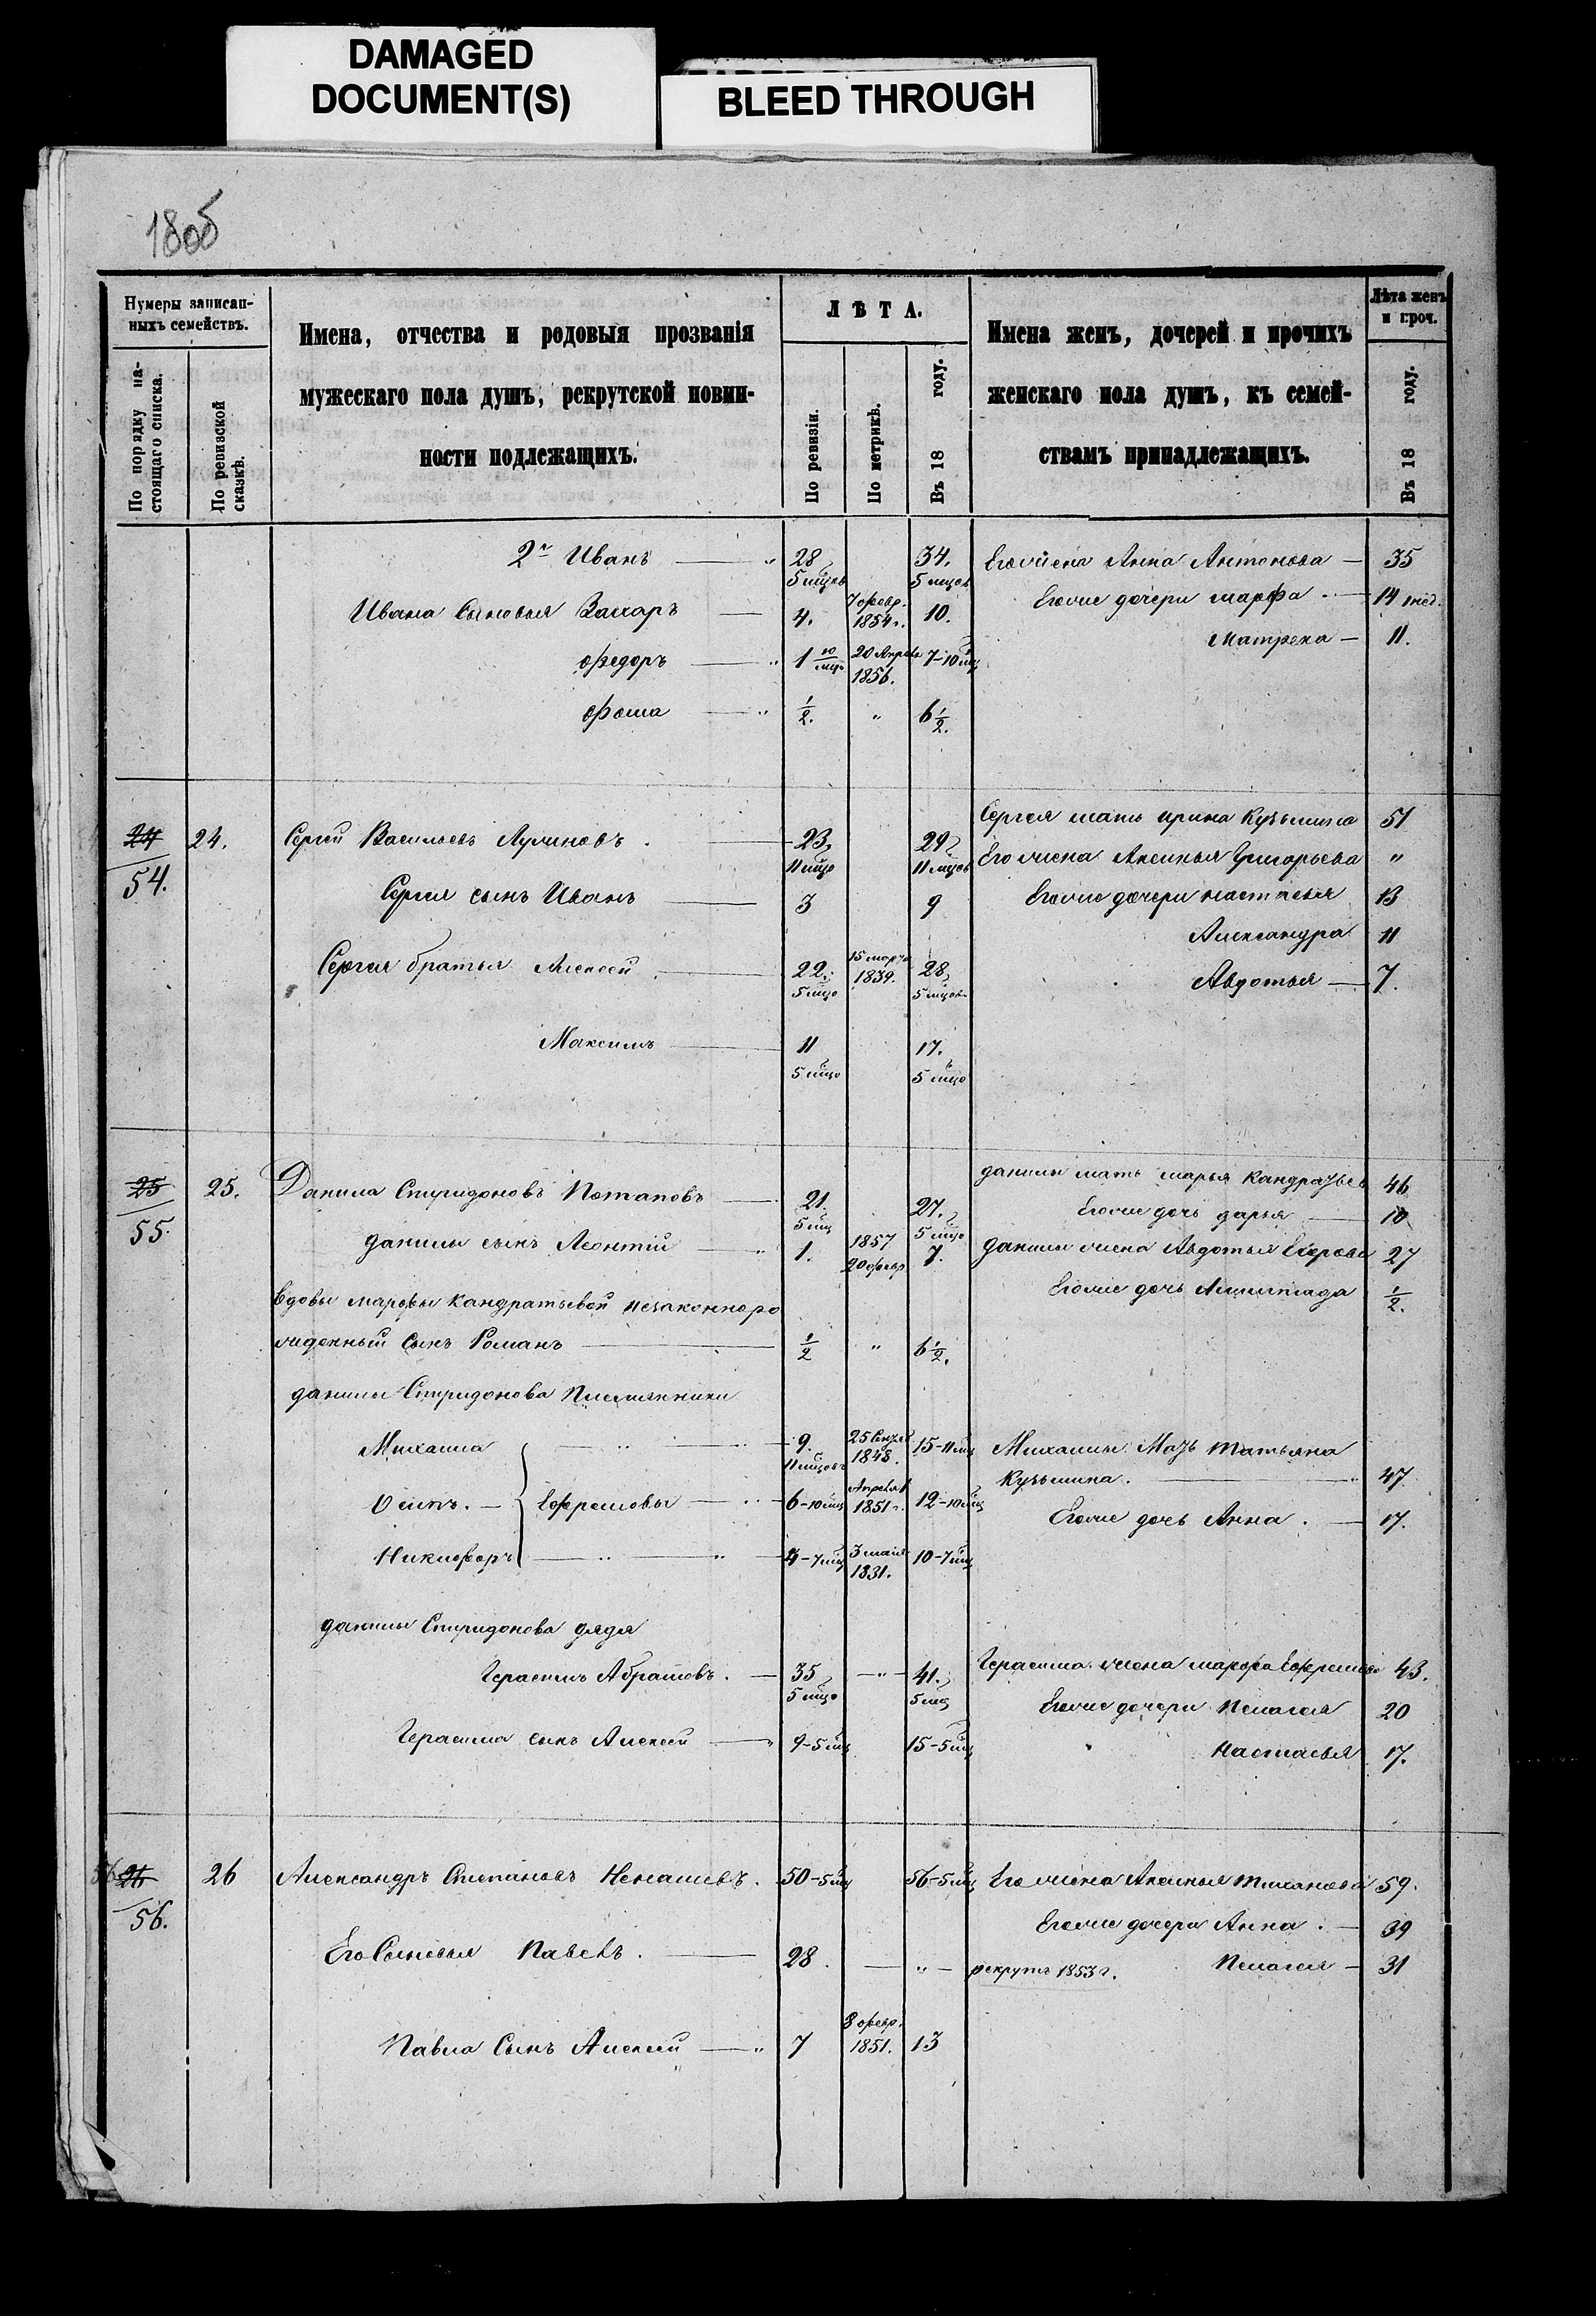 DAMAGED
DOCUMENT(S)
BLEED THROUGH
180об
Нумеры записан-
ныхъ семействъ.
По порядку на-
стоящаго списка.
По ревизской
сказкѣ.
Имена, отчества и родовыя прозванія
мужескаго пола душъ, рекрутской повин-
ности подлежащихъ.
ЛѢТА.
По ревизіи.
По метрикѣ.
Въ 18 году.
Имена женъ, дочерей и прочихъ
женскаго пола душъ, къ семей-
ствамъ принадлежащихъ.
Лѣта женъ
и проч.
Въ 18 году.
2й Иванъ — " 28 34. Его жена Анна Антонова — 35
5 мцов 5 мцов
Ивана Сыновья Захаръ — 4. 7 февр. 1854 г. 10. Его же дочери марфа — 14 1 нед.
Матрена — 11.
Федоръ — " 1 10/мцо 20 Апреля 1856. 7-10 мц
Фома — " 1/2. " 6 1/2.
Сергея мать ирина Кузьмина 51
24 24. Сергей Васильевъ Лупиновъ. — 23, 29,
54. 11 мцо 11 мцов Его жена Аксинья Григорьева "
Сергея сынъ Иванъ — 3 9 Его же дочери настасья 13
Александра 11
Сергея братья Алексей — 22. 15 марта 1839. 28,
5 мцо 5 мцов. Авдотья — 7.
Максимъ — 11 17.
5 мцо 5 мцо
данилы мать марья Кандратьев 46
25 25. Данила Спиридоновъ Потаповъ — 21. 27.
55. 5 мц 5 мцо Его же дочь дарья — 10
данилы сынъ Леонтій — " 1. 1857 20 февр 7. Данилы жена Авдотья 27
Вдовы марфы Кандратьевой незаконноро Его же дочь 1/2.
жденный Сынъ Романъ — 1/2 " 6 1/2.
данилы Спиридонова Племянники
Михаила — " — 9. 25 1848. 15-11 мц Михаилы Мать Татьяна
11 мцовъ Кузьмина. — " 47
Осипъ. — Ефремовы — 6-10 мц Апреля 1 1851 г. 12-10 мц
Его же дочь Анна. — 17.
Никифоръ — " — " 4-7 мц 3 мая 1831. 10-7 мц
данилы Спиридонова дядя
Герасимъ Абрамовъ. — 35 — " — 41. Герасима жена марфа Ефремова 43.
5 мцо 5 мц Его же дочери Пелагея 20
Герасима сынъ Алексей — " 9-5 мц 15-5 мц Настасья 17.
56 26 26 Александръ Степановъ Ненашевъ. 50-5 мц 56-5 мц Его жена Аксинья 59.
56. Его же дочери Анна. — 39
Его Сыновья Павелъ. — 28. — " — рекрутъ 1853 г. Пелагея — 31
Павла Сынъ Алексей — " 7 8 февр. 1851. 13